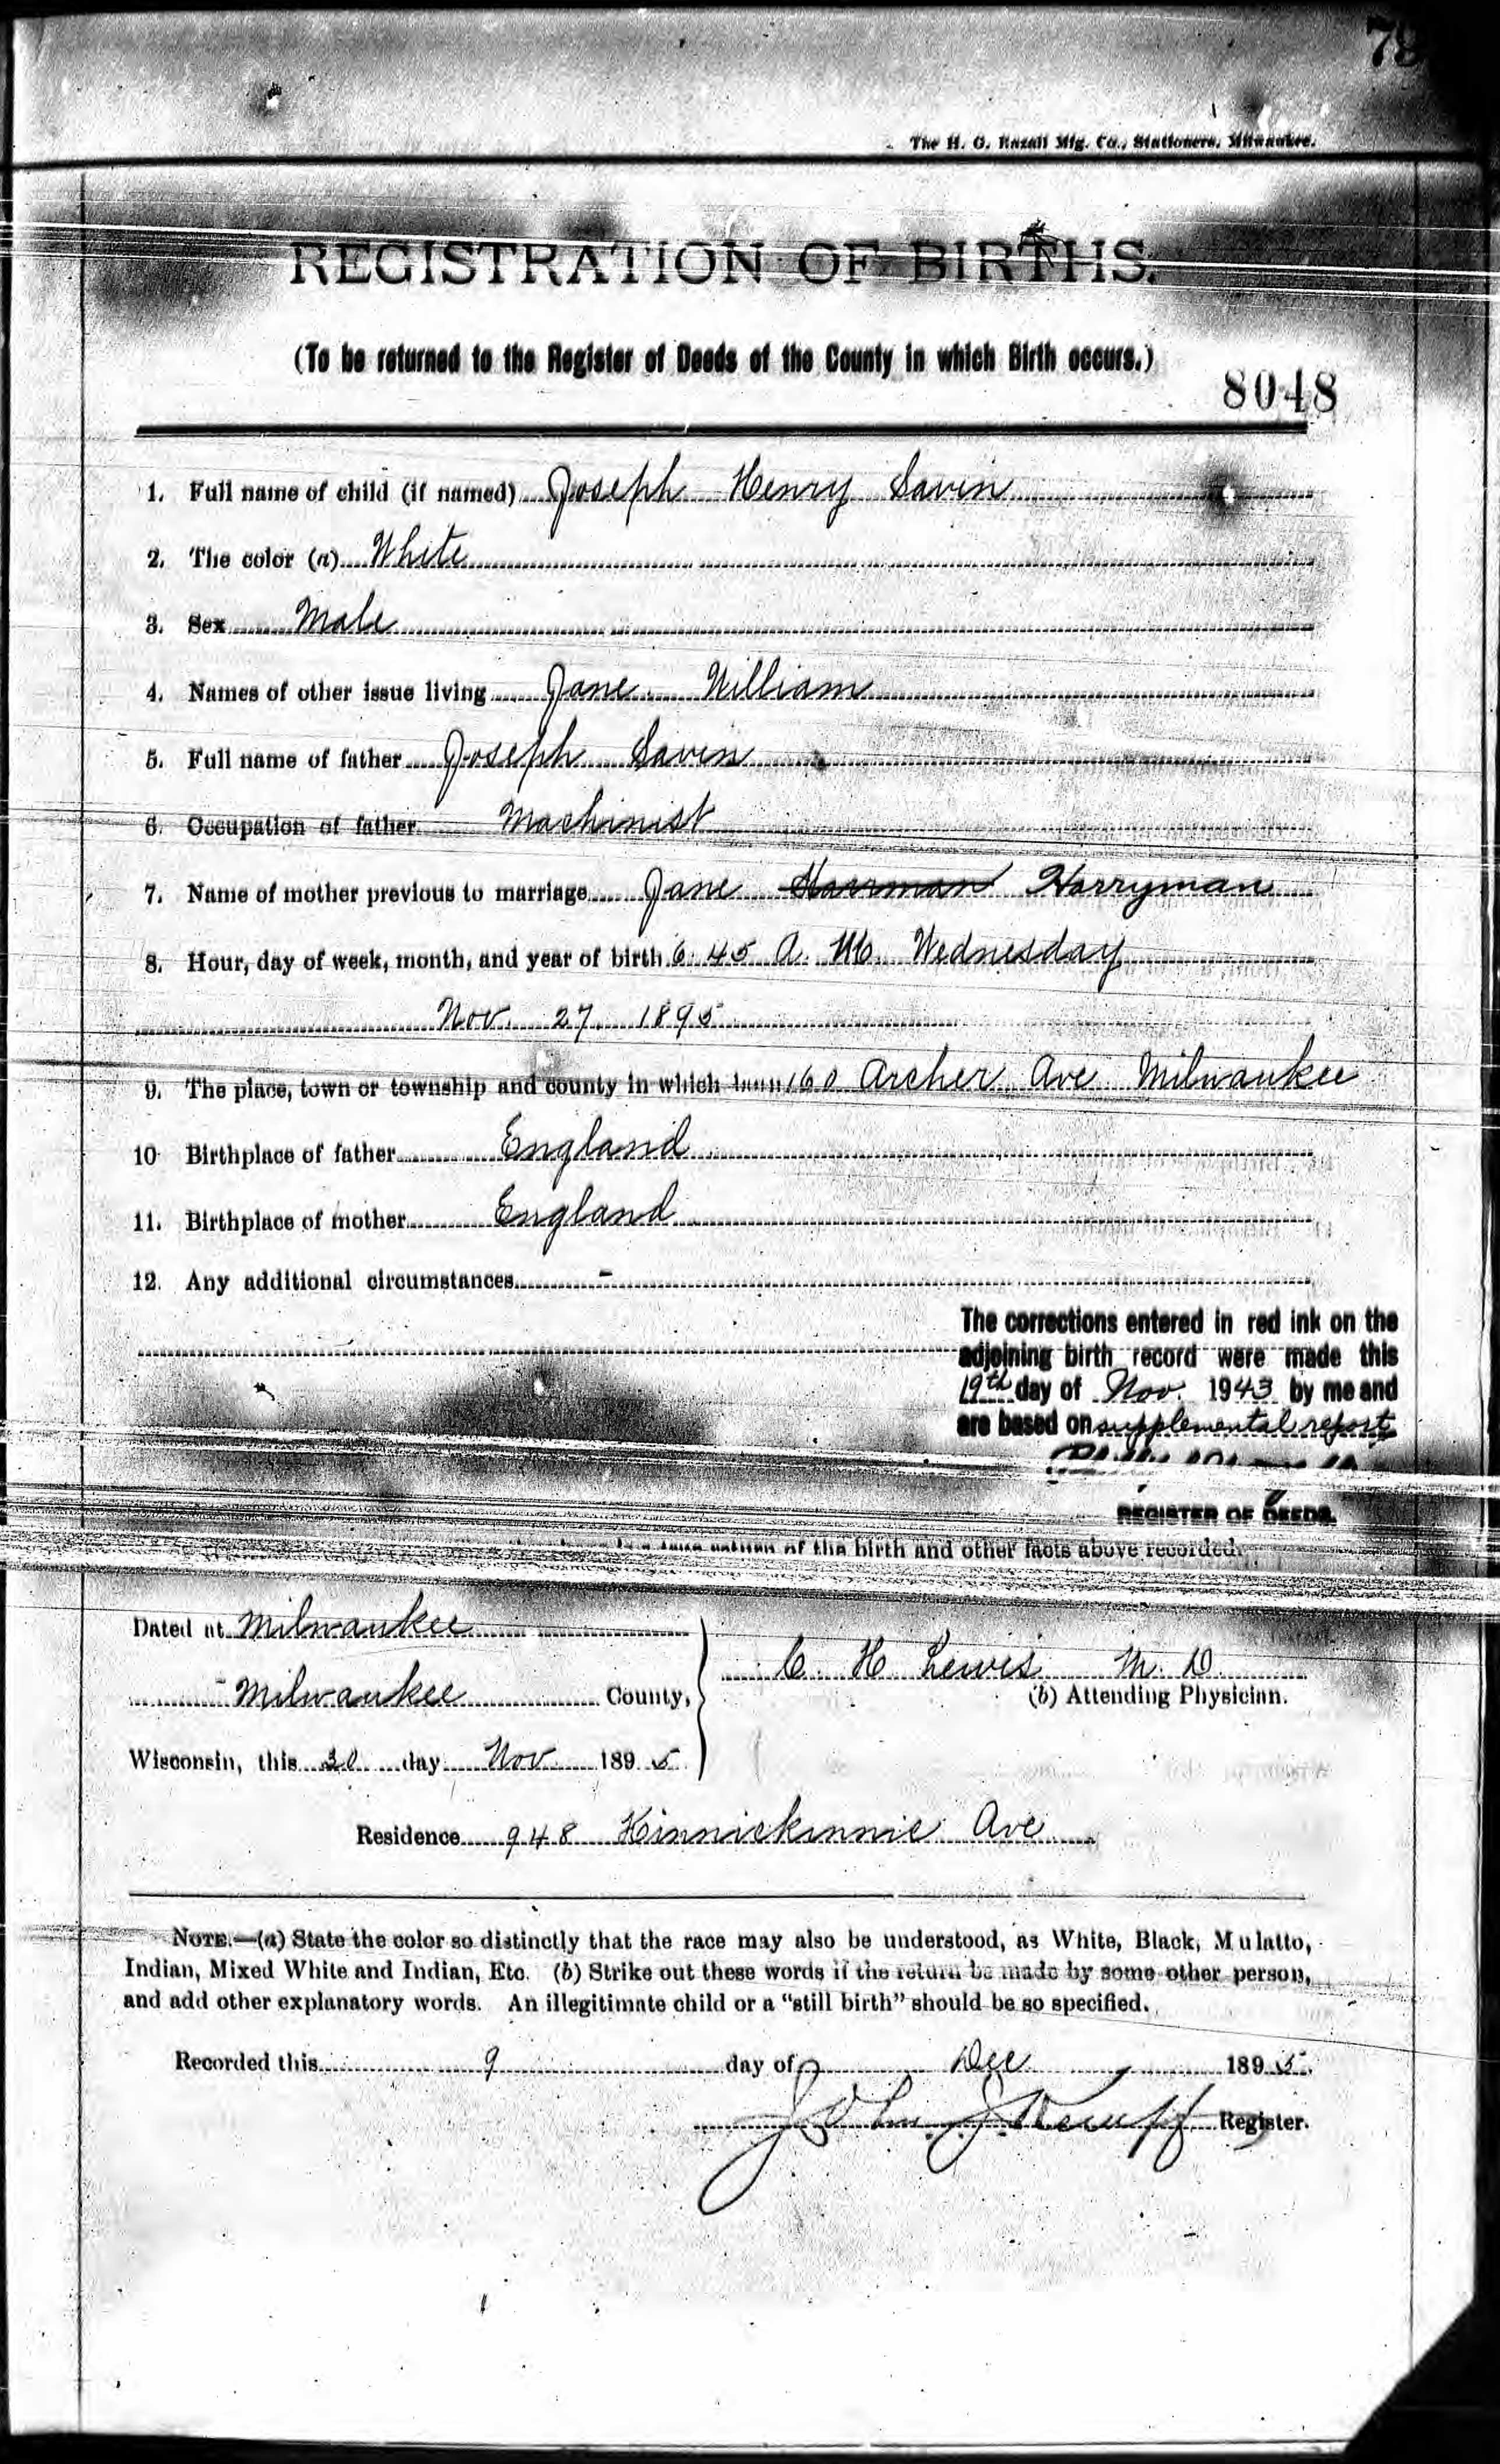 The H. G. Razall Mfg. Co., Stationers, Milwaukee.
REGISTRATION OF BIRTHS.
(To be returned to the Register of Deeds of the County in which Birth occurs.)
8048
1. Full name of child (if named) Joseph Henry Savin
2. The color (a) White
3. Sex Male
4. Names of other issue living Jane William
5. Full name of father Joseph Savin
6. Occupation of father Machinist
7. Name of mother previous to marriage Jane Harrman Harryman
8. Hour, day of week, month, and year of birth 6.45 A. M. Wednesday
Nov. 27 1895
9. The place, town or township and county in which born 160 Archer Ave Milwaukee
10 Birthplace of father England
11. Birthplace of mother England
12. Any additional circumstances -
The corrections entered in red ink on the
adjoining birth record were made this
19th day of Nov. 1943 by me and
are based on supplemental report
REGISTER OF DEEDS.
of the birth and other facts above recorded.
Dated at Milwaukee
Milwaukee County,
C. H. Lewis M. D.
(b) Attending Physician.
Wisconsin, this 30 day Nov 1895
Residence 948 Kinnickinnic Ave
NOTE.—(a) State the color so distinctly that the race may also be understood, as White, Black, Mulatto,
Indian, Mixed White and Indian, Etc. (b) Strike out these words if the return be made by some other person,
and add other explanatory words. An illegitimate child or a "still birth" should be so specified.
Recorded this 9 day of Dec 1895.
John Register.